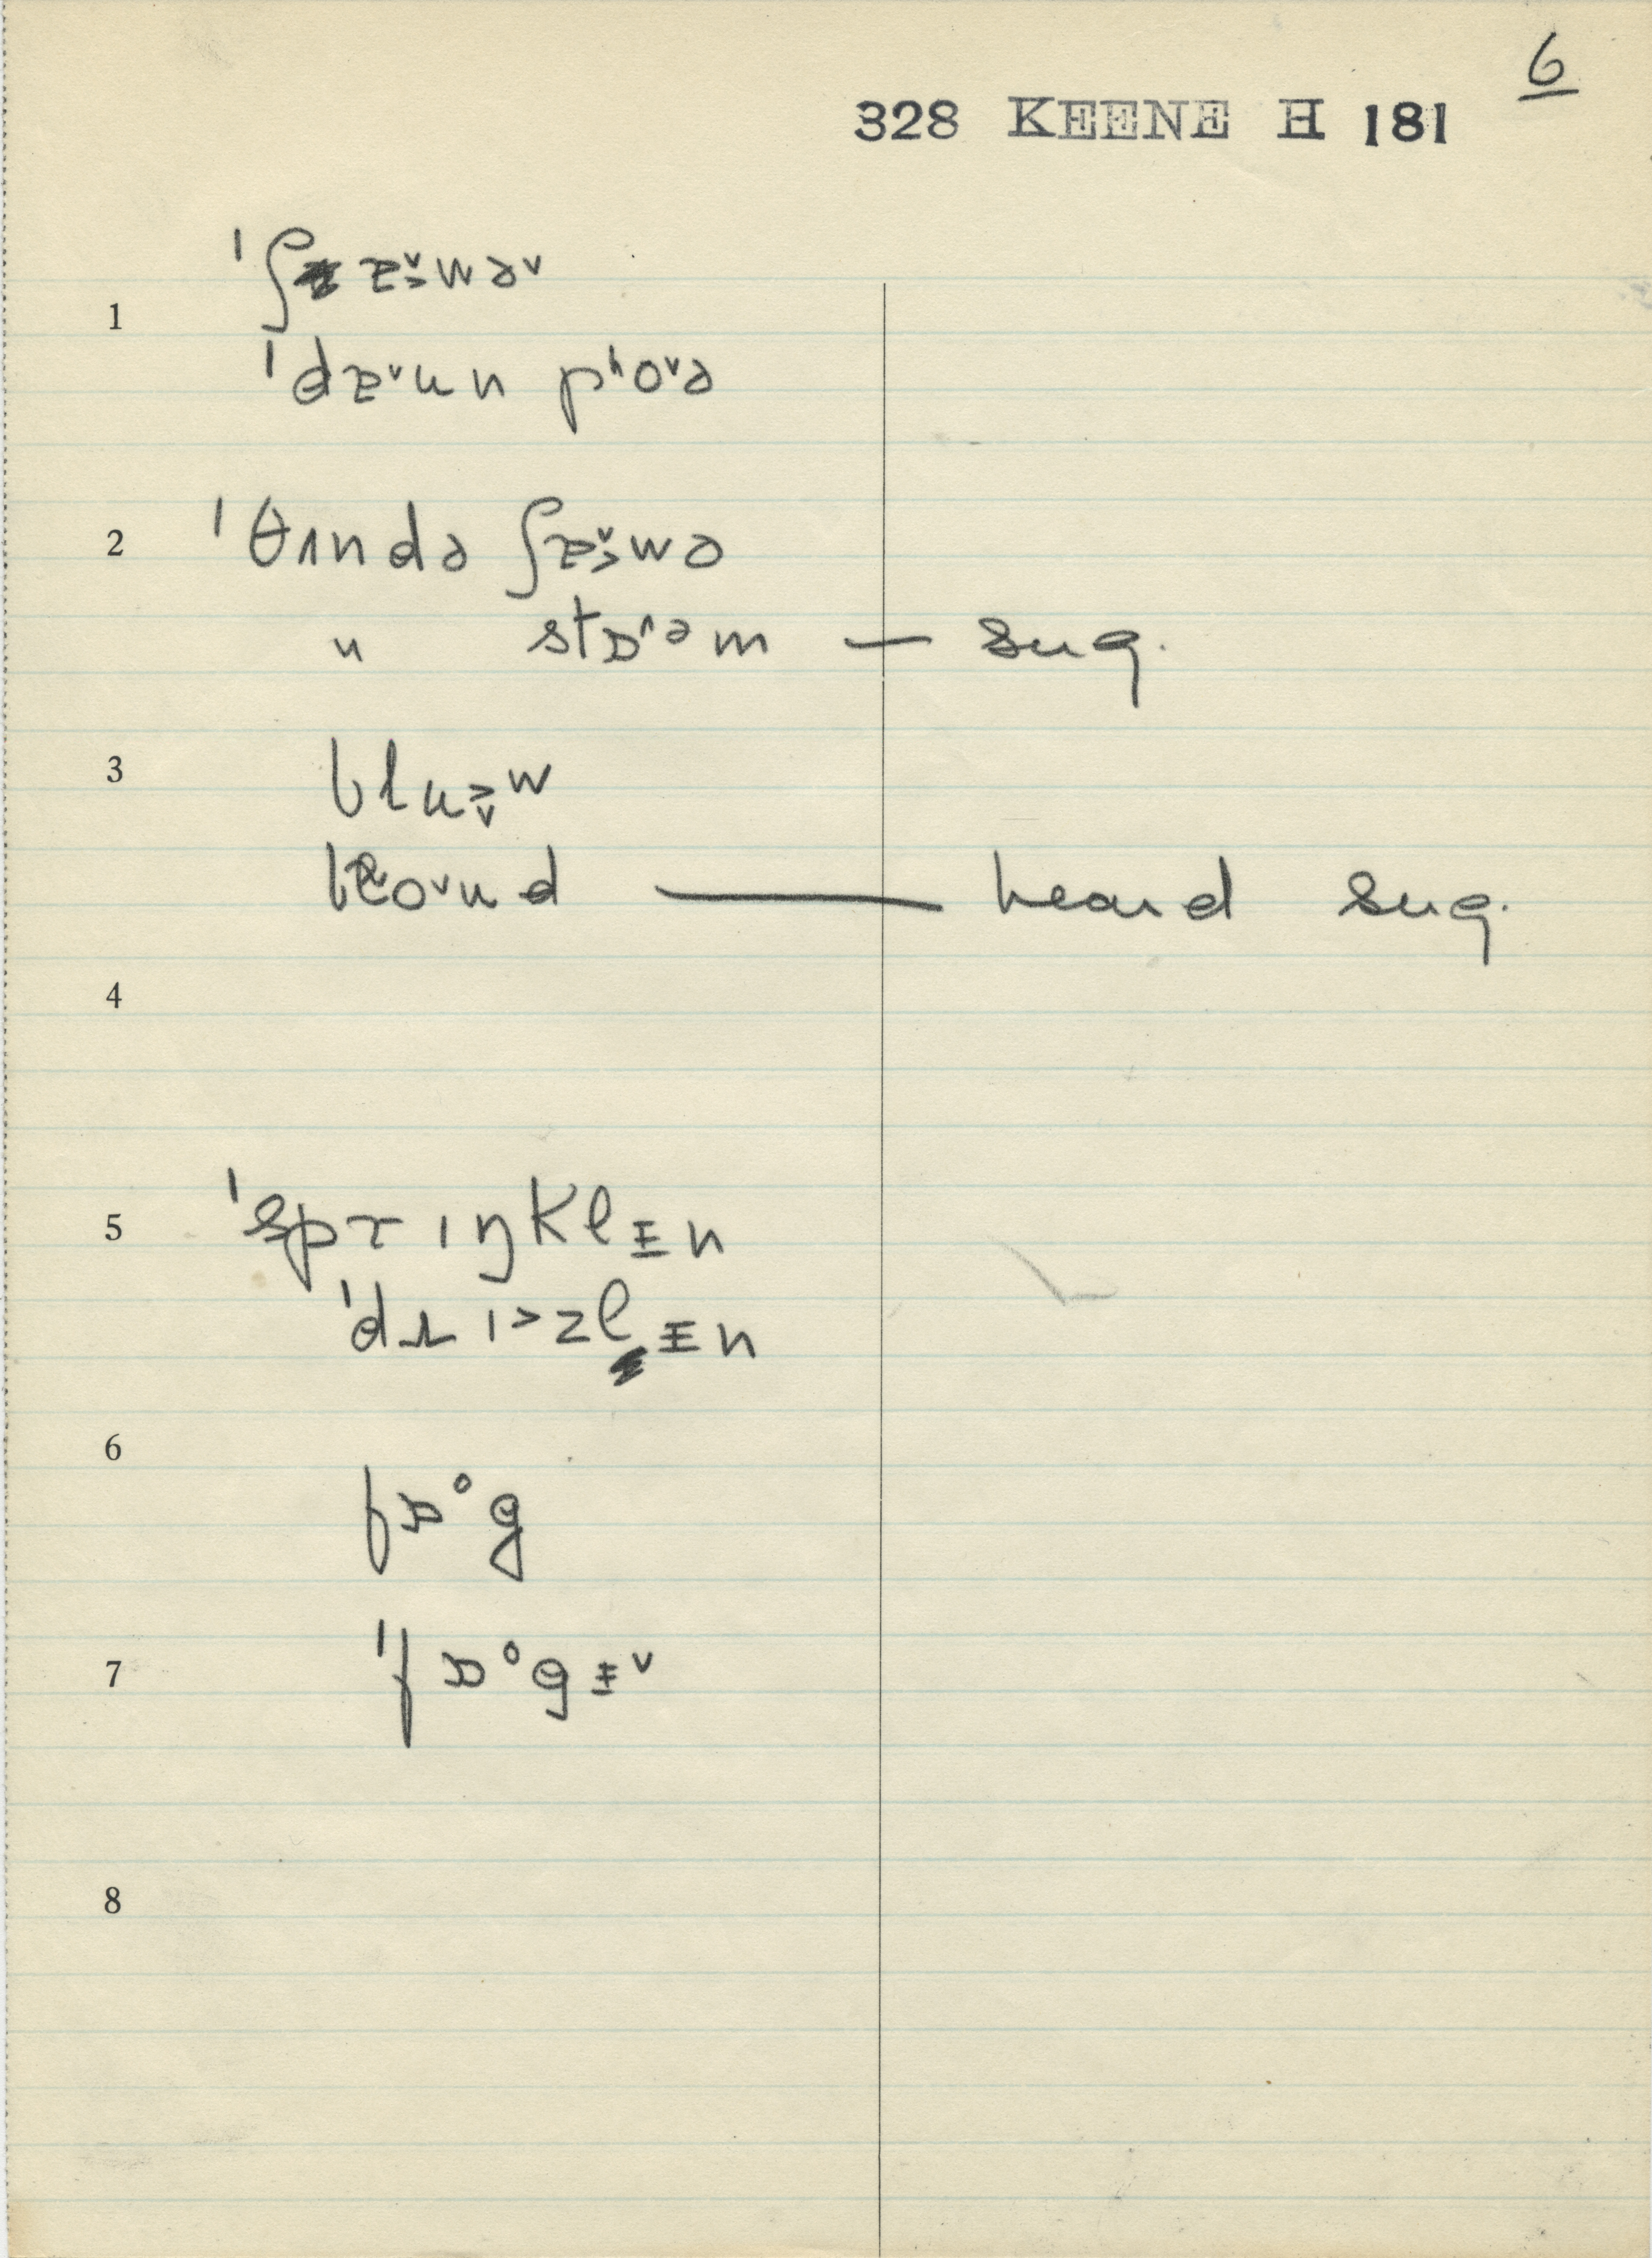 6
328 KEENE H 181
1
ˈʃɐˇ˃wəˇ
ˈdɐˇʊn pʰoˇə
2
ˈθʌndə ʃɐˇ˃wə
" stɒ^əm — sug.
3
blʉ˃ˇw
oˇʊd — heard sug.
4
5
ˈsprɪŋklɪ̵n
ˈdɹɪ˃zlɪ̵n
6
fɒ°g
7
ˈfɒ°gɪ̵ˇ
8